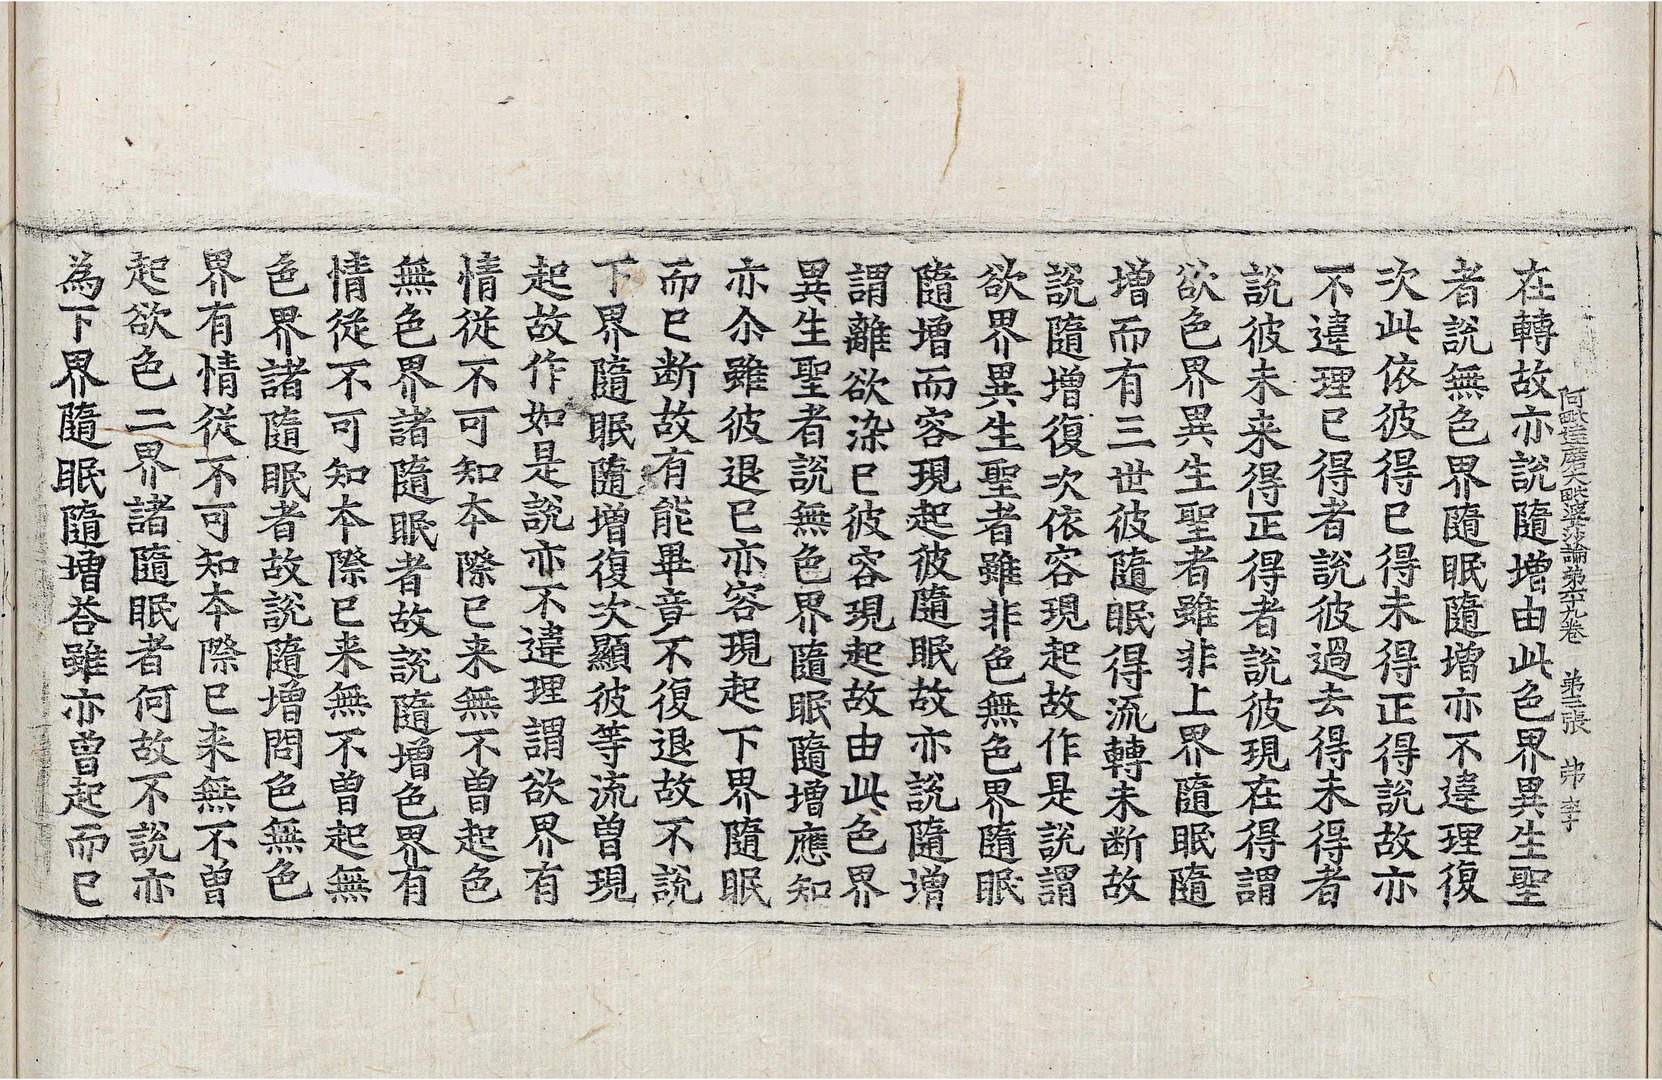 阿毗達磨大毗婆沙論第九卷 第三張 弗 李
在轉故亦說隨增由此色界異生聖
者說無色界隨眠隨增亦不違理復
次此依彼得已得未得正得說故亦
不違理已得者說彼過去得未得者
說彼未来得正得者說彼現在得謂
欲色界異生聖者雖非上界隨眠隨
增而有三世彼隨眠得流轉未断故
說隨增復次依容現起故作是說謂
欲界異生聖者雖非色無色界隨眠
隨增而容現起彼隨眠故亦說隨增
謂離欲染已彼容現起故由此色界
異生聖者說無色界隨眠隨增應知
亦尒雖彼退已亦容現起下界隨眠
而已断故有能畢竟不復退故不說
下界隨眠隨增復次顯彼等流曽現
起故作如是說亦不違理謂欲界有
情從不可知本際已来無不曽起色
無色界諸隨眠者故說隨增色界有
情從不可知本際已来無不曽起無
色界諸隨眠者故說隨增問色無色
界有情從不可知本際已来無不曽
起欲色二界諸隨眠者何故不說亦
為下界隨眠隨增荅雖亦曽起而已